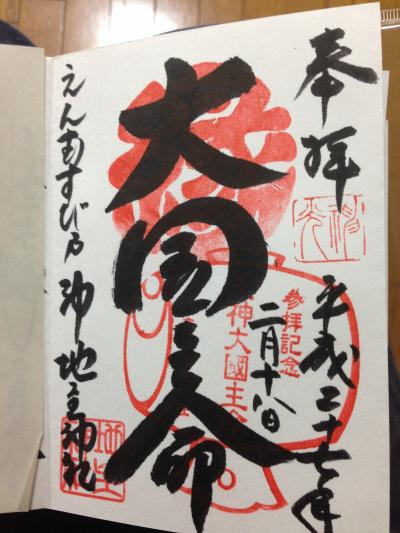 奉拝
平成二十七年
二月十八日
参拝記念
神大國主命
大国主命
えんむすびの神地主神社
地主